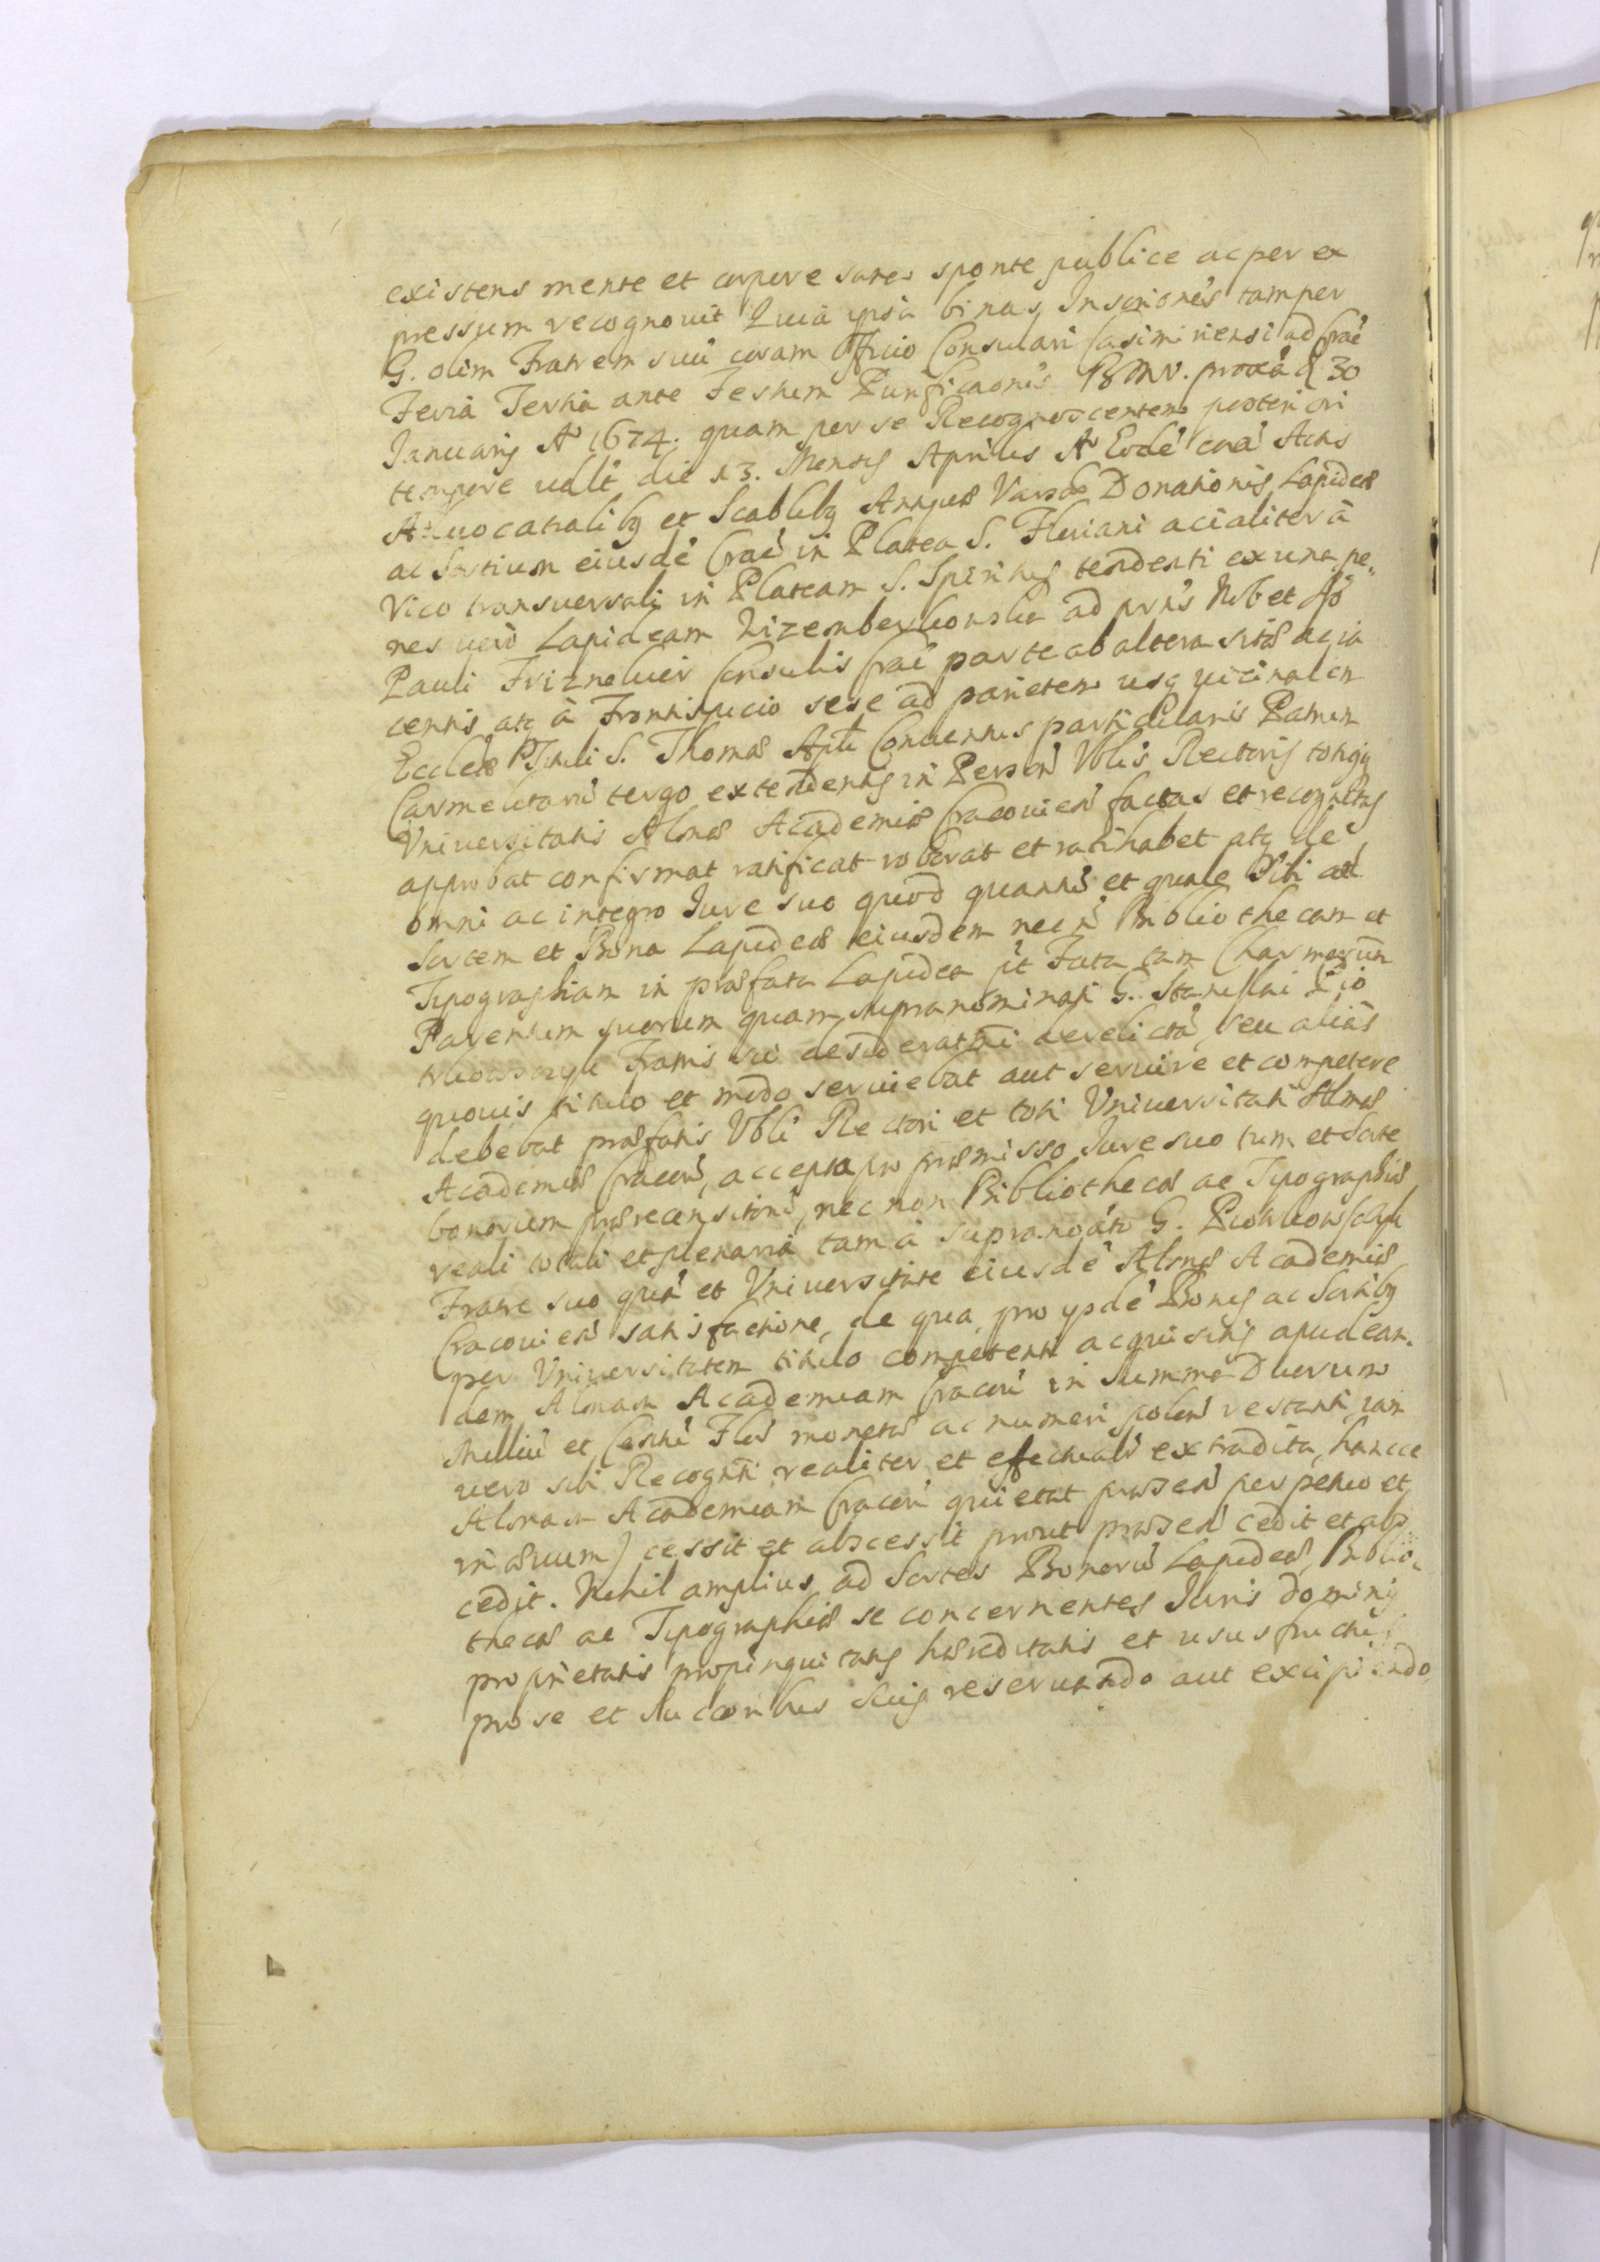 existens mente et corpore sanus sponte publice ac per ex
pressum recognovit Quia ipsa binas Inscriones tam per
G. olim Fratrem suũ coram Officio Consulari Casimiriensi ad Crac̃
Feria Tertia ante Festum Purificaonis BMV. proxa d 30
Januarij Aº 1674. quam per se Recognoscentem posteriori
tempore die 13. Mensis Aprilis Aº Eodẽ corã Actis
Aduocatialibȝ et Scablibȝ Donationis Lapideæ
ac Sortium eiusdẽ Crac̃ in Platea S. Floriani acialiter à
Vico transuersali in Plateam S. Spiritus tendenti ex una pe,,
nes verò Lapideam ad prñs Nob et
Pauli Frizneker Consulis Crac̃ parte ab altera sitæ ac ia
centis atq̃ à Frontispicio sese ad parietem usq̃ vicinalem
Ecclæ Tituli S. Thomæ Apli Conuentus particularis Patrum
Carmelitarũ tergo extendentis in Person̄ Rectoris totiq̃
Vniuersitatis Almæ Academiæ Cracouien̄ factas et recognitas
approbat confirmat ratificat roborat et ratihabet atq̃ de
omni ac integro Jure suo quod quantũ et quale Sibi ad
Sortem et Bona Lapideæ eiusdem nec n̄ Bibliothecam et
Tipographiam in præfata Lapidea pt̃ Fata tam Charmorũ
Parentum suorum quam supranominati G. Stanislai Pio
Fratris sui desideratmi derelictã, seu alias
quouis titulo et modo seruiebat aut seruire et competere
debebat præfatis Rectori et toti Vniuersitati Almæ
Academiæ Cracou̇, accepta pro præmisso Jure suo tum et Sorte
bonorum prærecensitorũ, nec non Bibliothecæ ac Tipographiæ
reali totali et plenaria tam a supranoãto G.
Fratre suo quã et Vniuersitate eiusdẽ Almæ Academiæ
Cracouien̄ satisfactione, de qua, pro ysdẽ Bonis ac Sortibȝ
per Vniuersitatem titulo competenti acquisitis apud ean.
dem Almam Academiam Cracou̇ in Summa Duorum
Milliũ et Centũ Floñ monetæ ac numeri polon̄ restanti, iam
vero sibi Recognti realiter et effectualr̃ extradita, hancce
Almam Academiam Cracou̇ quietat præsen̄ perpetuo et
in æuum) cessit et abscessit prout præsen̄ cedit et abs
cedit. Nihil amplius ad Sortes Bonorũ Lapideæ, Biblio,
thecæ ac Tipographiæ se concernentes Juris dominij
proprietatis propinquitatis hæreditatis et ususfructus
pro se et Succoribus suis reseruando aut excipiendo